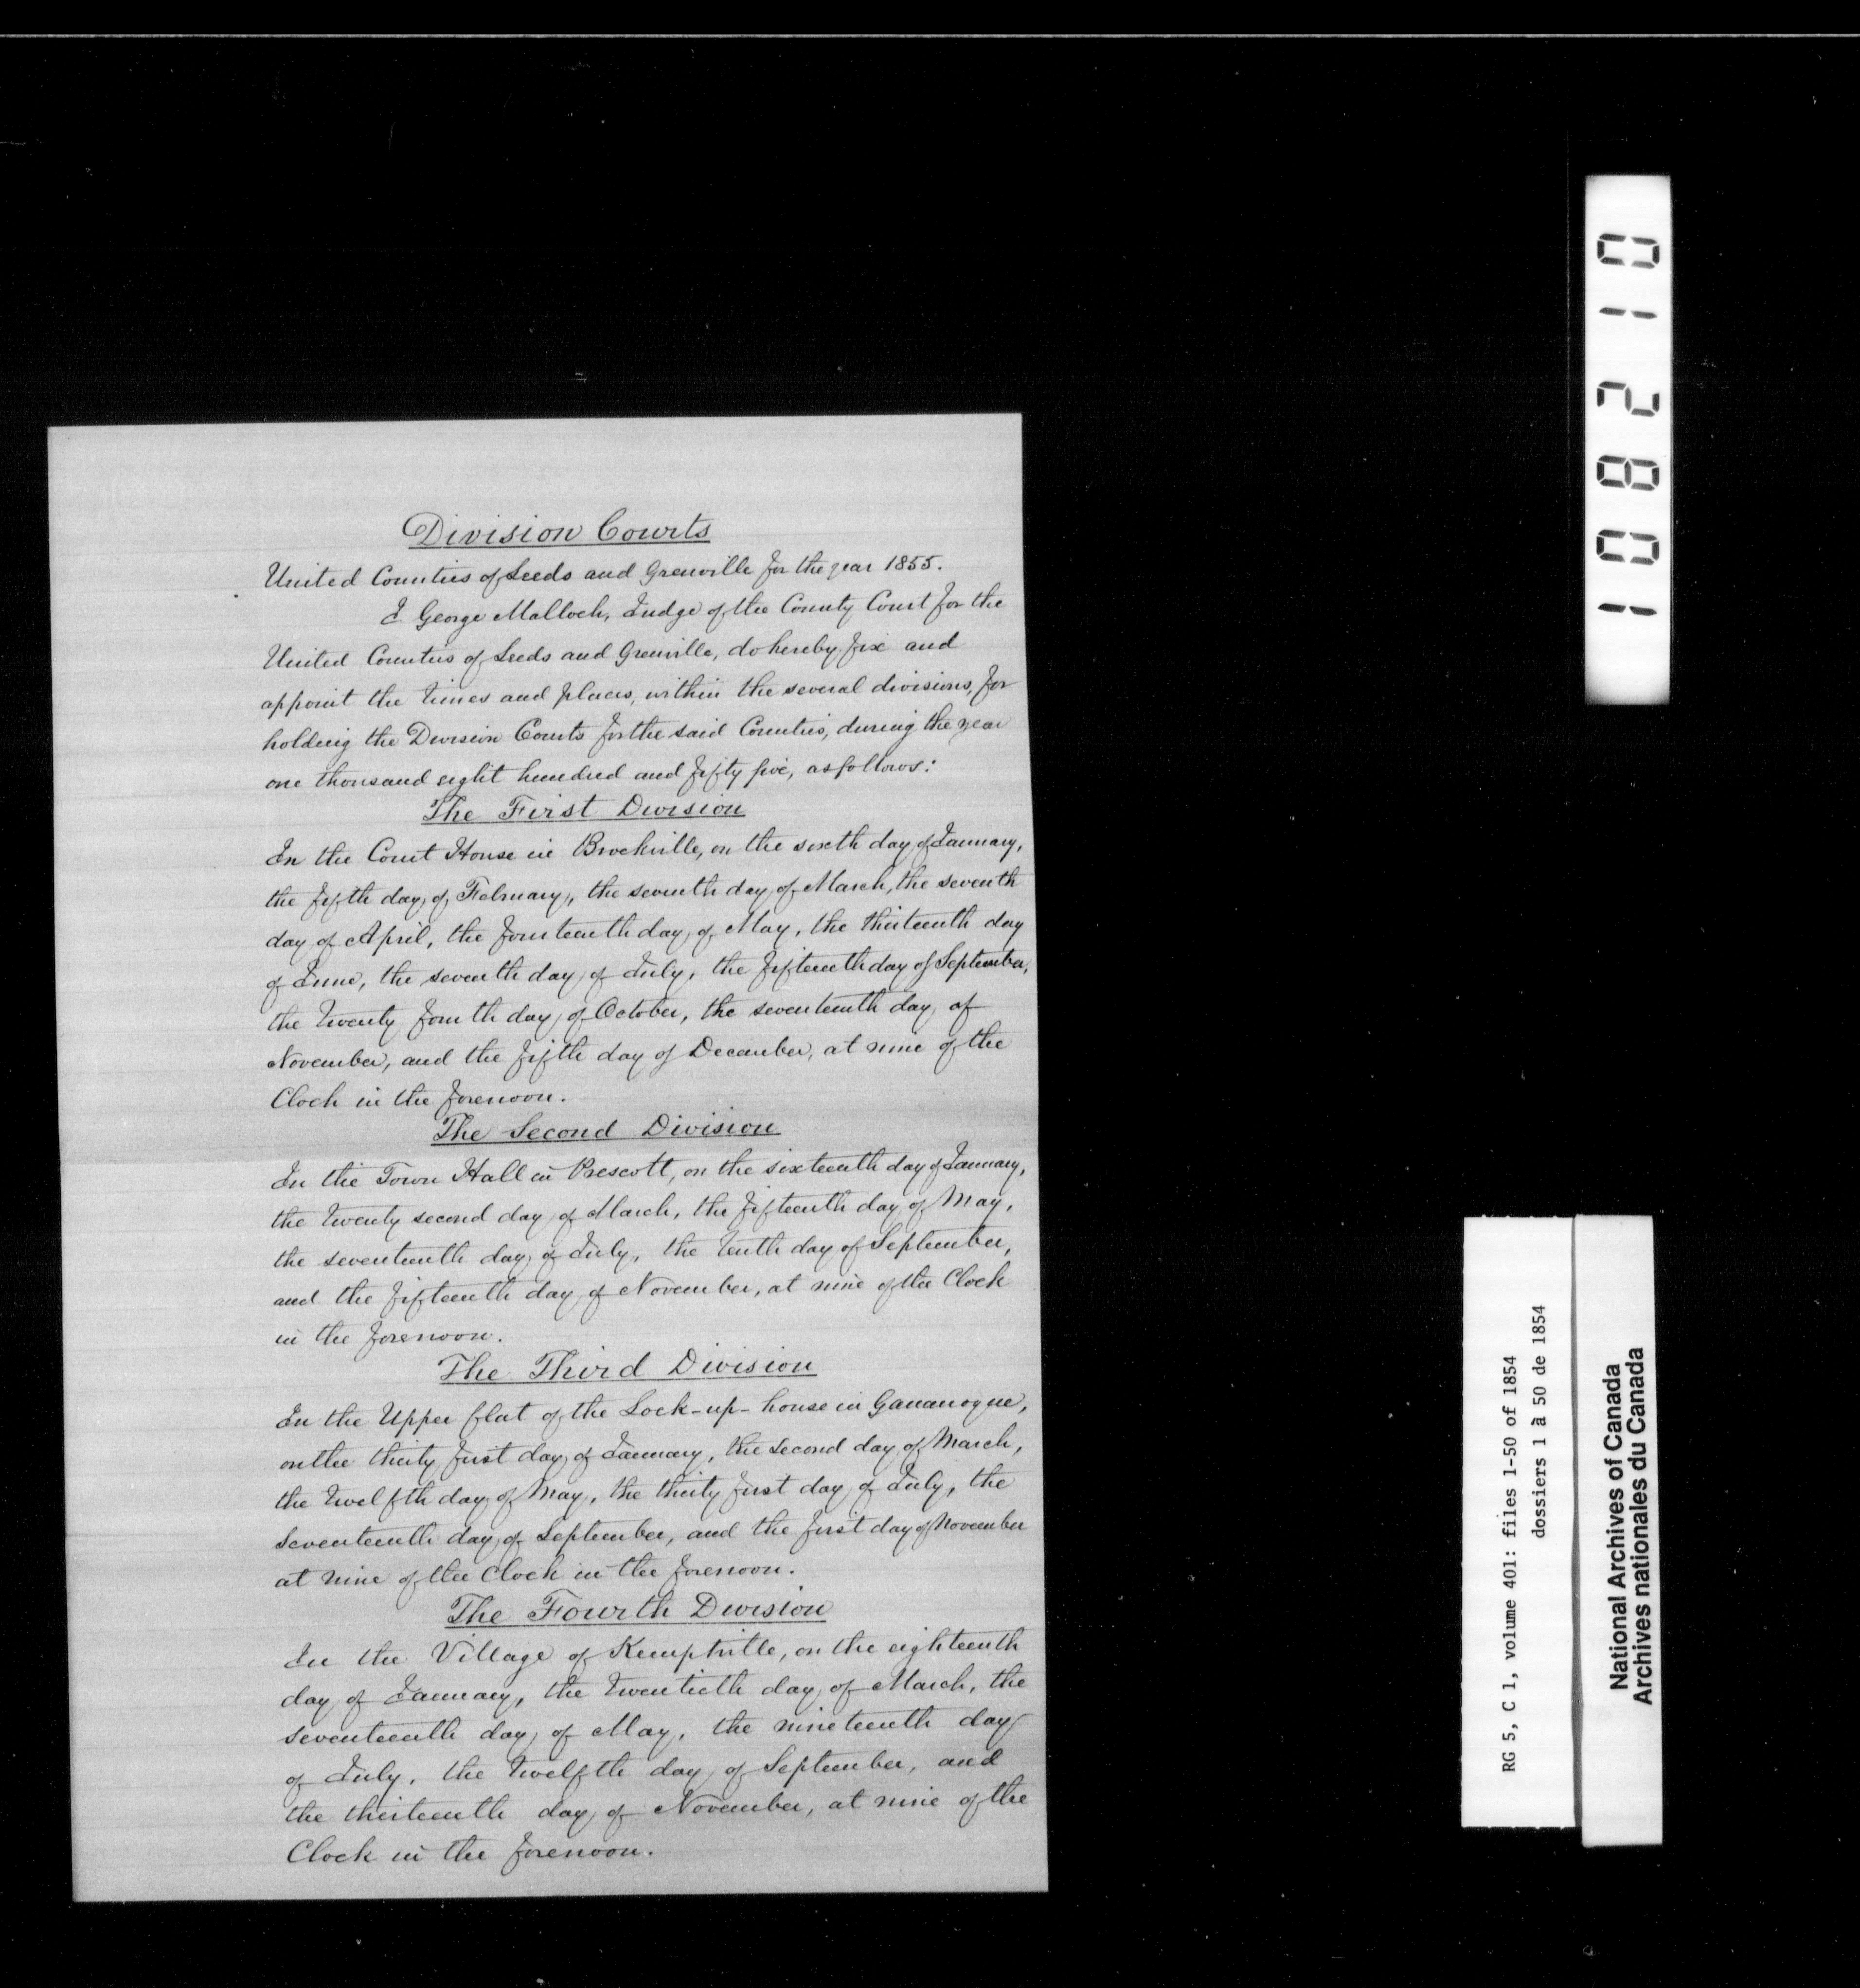 Division Courts
United Counties of Leeds and Grenville for the year 1855.
I George Malloch, Judge of the County Court for the
United Counties of Leeds and Grenville, do hereby fix and
appoint the times and places, within the several divisions, for
holding the Division Courts for the said Counties, during the year
one thousand eight hundred and fifty five, as follows:
The First Division
In the Court House in Brockville, on the sixth day of January,
the fifth day of February, the seventh day of March, the seventh
day of April, the fourteenth day of May, the thirteenth day
of June, the seventh day of July, the fifteenth day of September,
the twenty fourth day of October, the seventeenth day of
November, and the fifth day of December, at nine of the
Clock in the forenoon.
The Second Division
In the Town Hall in Prescott, on the sixteenth day of January,
the twenty second day of March, the fifteenth day of May,
the seventeenth day of July, the tenth day of September,
and the fifteenth day of November, at nine of the Clock
in the forenoon.
The Third Division
In the Upper flat of the Lock-up-house in Gananoque,
on the thirty first day of January, the second day of March,
the twelfth day of May, the thirty first day of July, the
seventeenth day of September, and the first day of November
at nine of the Clock in the forenoon.
The Fourth Division
In the Village of Kemptville, on the eighteenth
day of January, the twentieth day of March, the
seventeenth day of May, the nineteenth day
of July, the twelfth day of September, and
the thirteenth day of November, at nine of the
Clock in the forenoon.
108210
RG 5, C 1, volume 401: files 1-50 of 1854
dossiers 1 à 50 de 1854
National Archives of Canada
Archives nationales du Canada